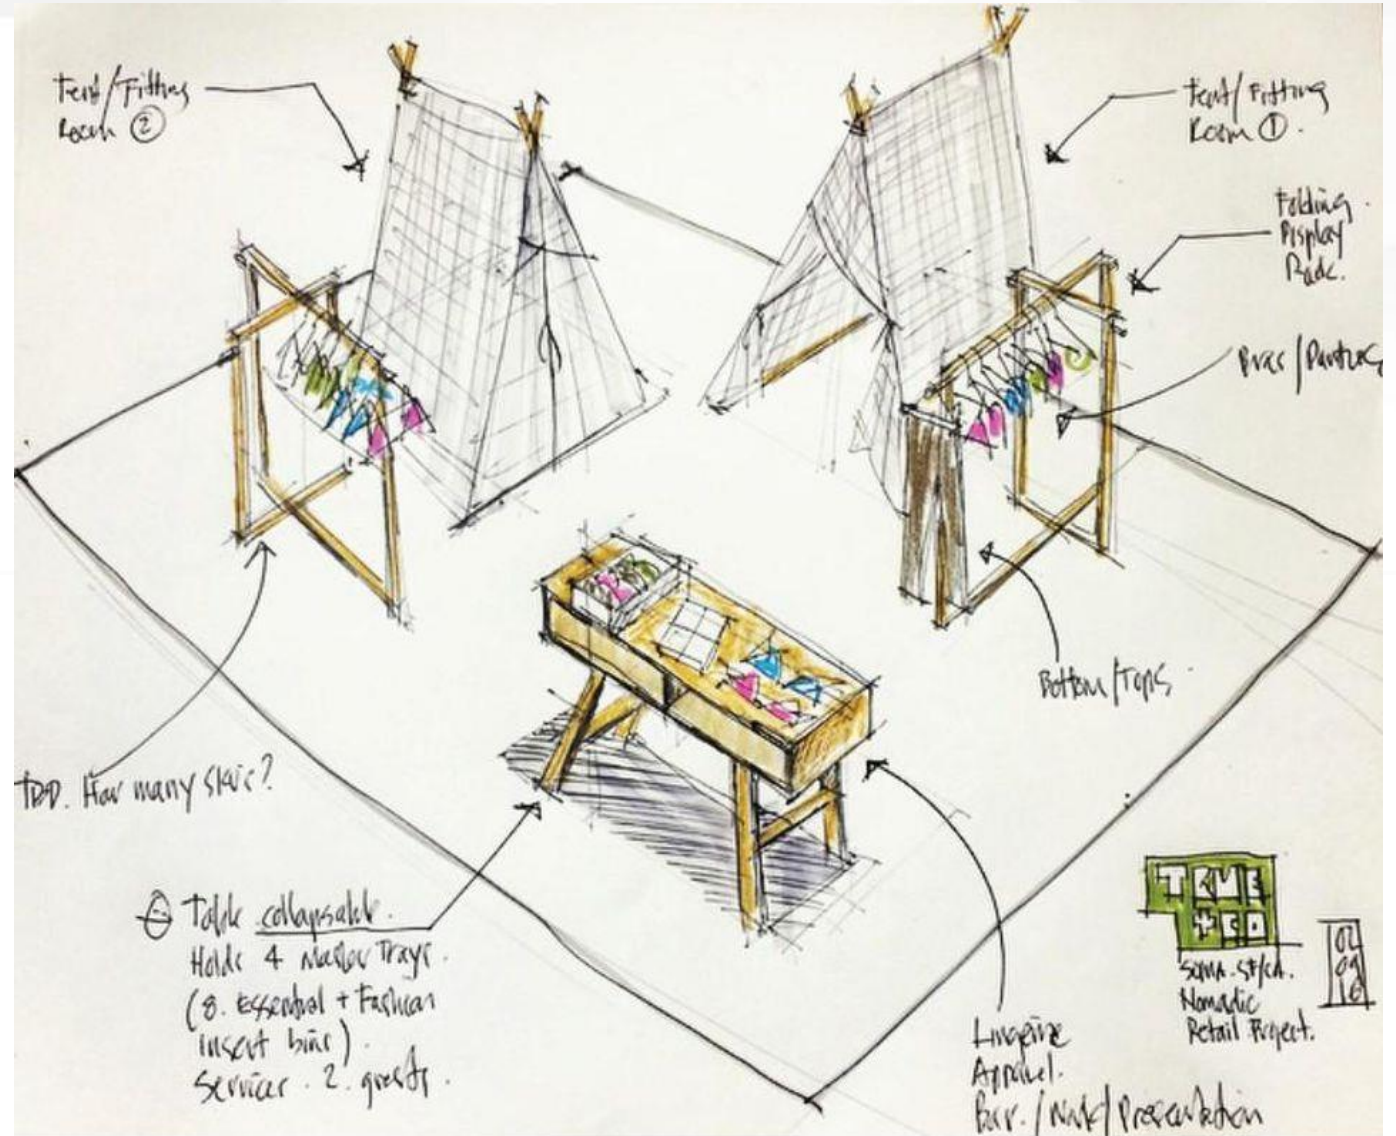 Tent/Fitting
Room ②
Tent/Fitting
Room ①.
Folding
Display
Rack.
Bras/Panties
Bottom/Tops.
TBD. How many skus?
Table collapsable.
Holds 4 Master Trays.
(8. Essential + Fashion
insert bins).
Services. 2. guests.
Lingerie
Apparel.
Bar./ /Presentation
TRUE
+CO
SOMA. SF/CA.
Nomadic
Retail Project.
02
09
16